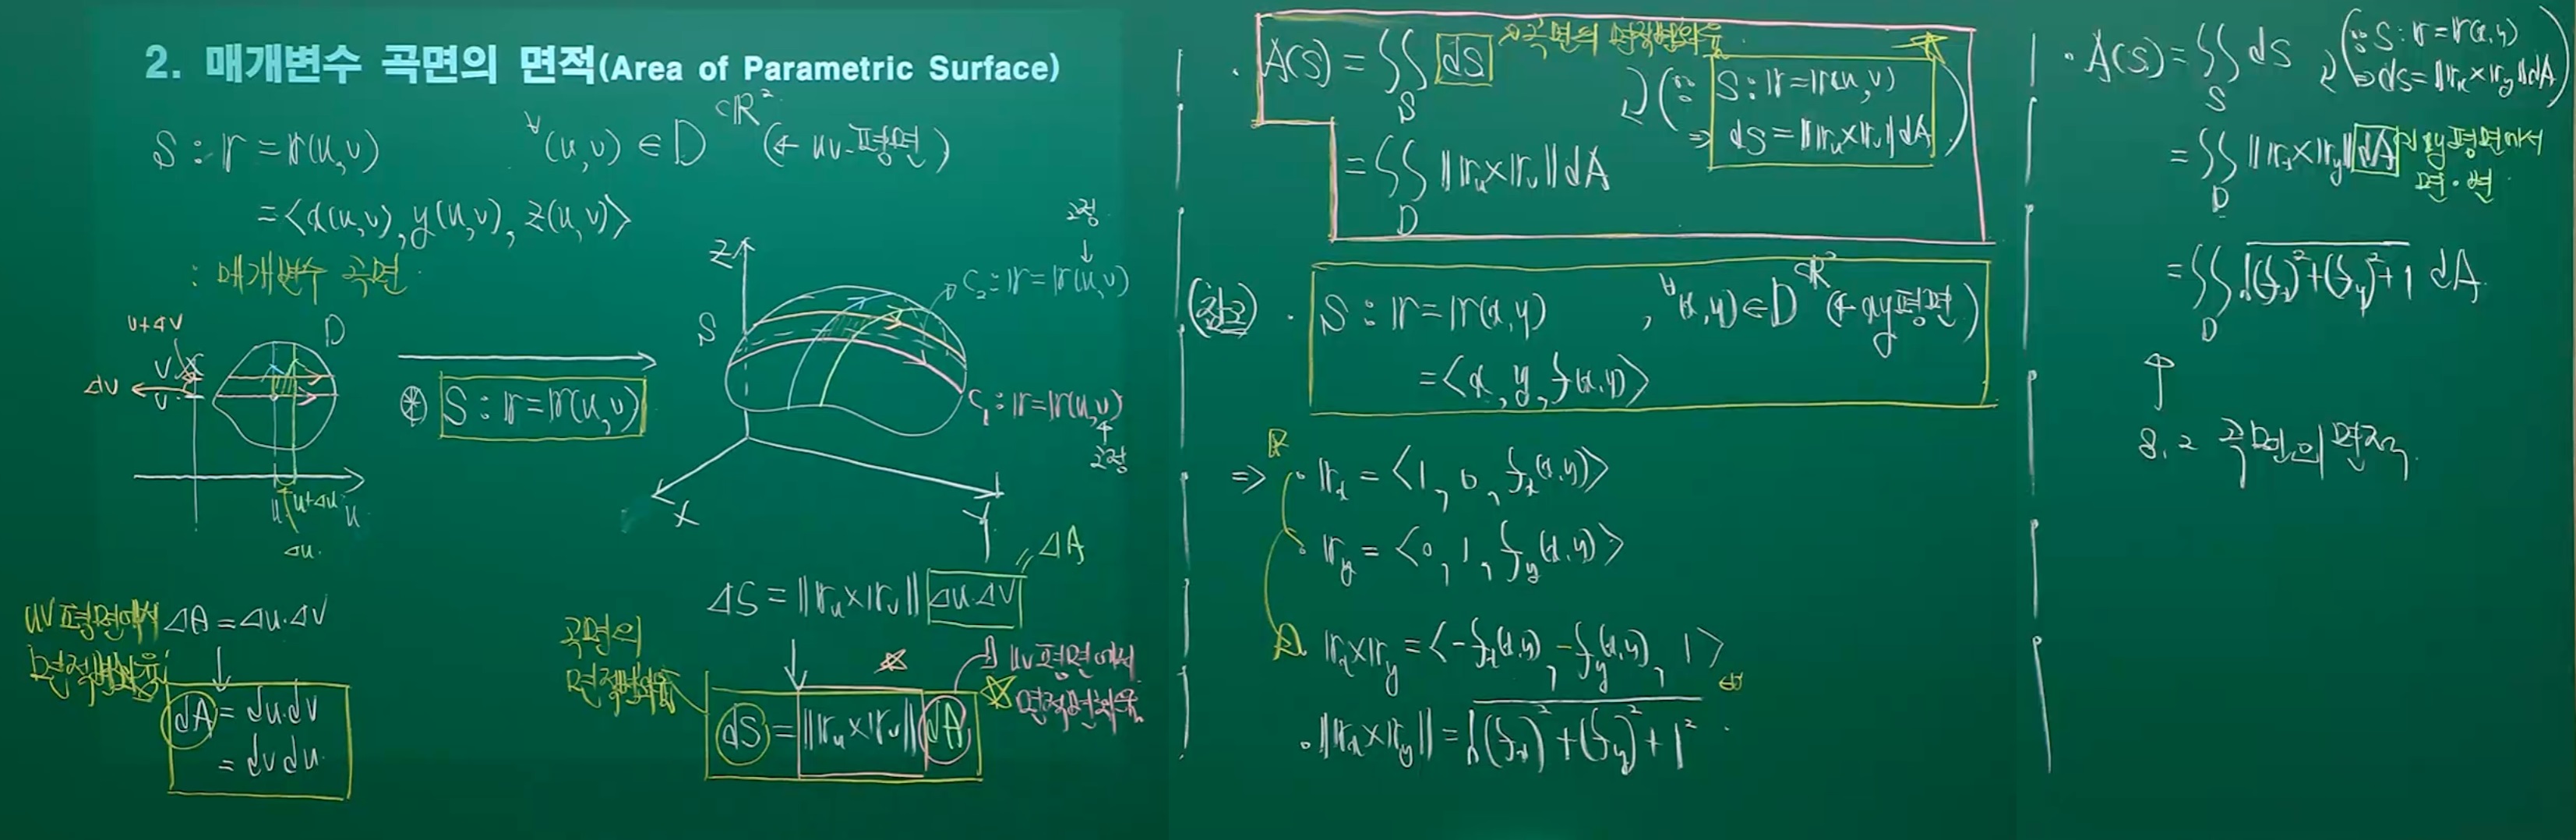 2. 매개변수 곡면의 면적(Area of Parametric Surface)
S : r = r(u,v) ∀(u,v) ∈ D ⊂ℝ² (← uv-평면)
= <x(u,v), y(u,v), z(u,v)>
: 매개변수 곡면.
v+Δv
v
Δv
D
u
u+Δu
u
Δu.
⊛ S : r = r(u,v)
Z
S
X
Y
고정
↓
C₂ : r = r(u,v)
C₁ : r = r(u,v)
↑
고정
uv평면에서 ΔA = Δu·Δv
면적변화율
↓
dA = du·dv
= dv du.
ΔS = ||rᵤ×rᵥ|| Δu·Δv = ΔA
↓
곡면의
면적변화율
dS = ||rᵤ×rᵥ|| dA
uv평면에서
면적변화율
· A(S) = ∬_S dS 곡면의 면적변화율
(∵ S : r = r(u,v)
⇒ dS = ||rᵤ×rᵥ|| dA)
= ∬_D ||rᵤ×rᵥ|| dA
(참고) · S : r = r(x,y) , ∀(x,y) ∈ D ⊂ℝ² (← xy평면)
= <x, y, f(x,y)>
⇒ · rₓ = <1, 0, fₓ(x,y)>
· r_y = <0, 1, f_y(x,y)>
rₓ×r_y = <-fₓ(x,y), -f_y(x,y), 1>
· ||rₓ×r_y|| = √((fₓ)²+(f_y)²+1²) .
· A(S) = ∬_S dS (∵ S : r = r(x,y)
⇒ dS = ||rₓ×r_y|| dA)
= ∬_D ||rₓ×r_y|| dA xy평면에서
면·변
= ∬_D √((fₓ)²+(f_y)²+1) dA
↑
8.2 곡면의 면적.